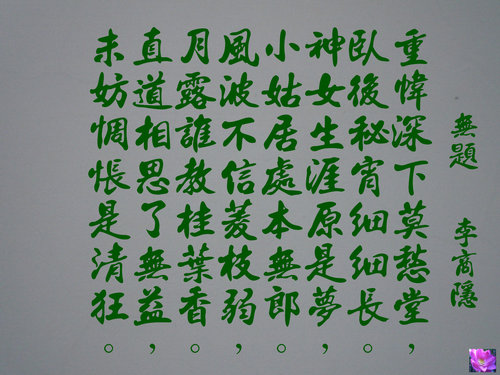 無題 李商隱
重幃深下莫愁堂，
臥後秘宵細細長。
神女生涯原是夢，
小姑居處本無郎。
風波不信菱枝弱，
月露誰教桂葉香。
直道相思了無益，
未妨惆悵是清狂。